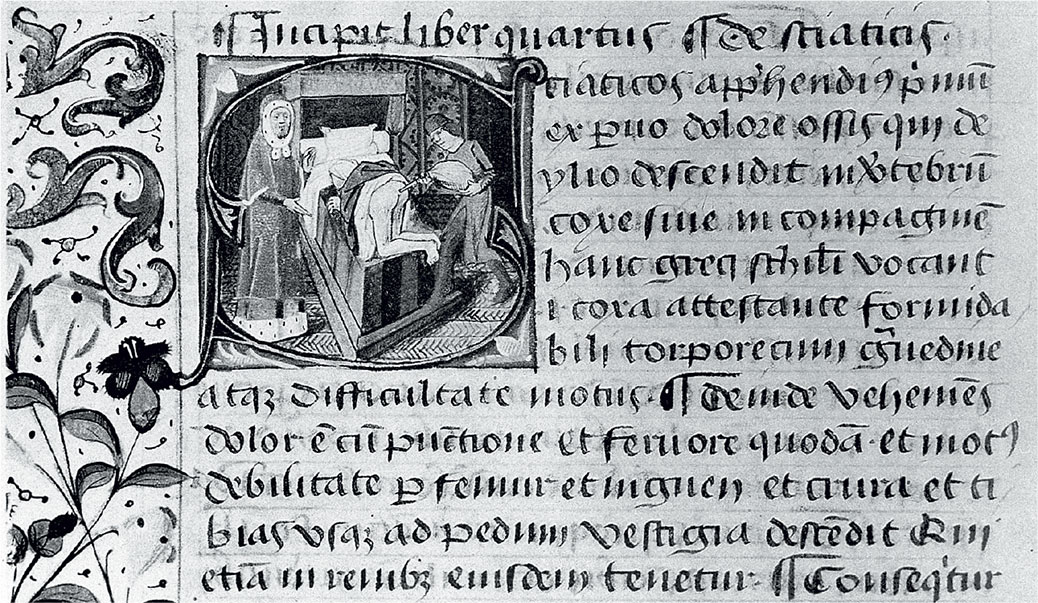 ¶ Incipit liber quartus ¶ de sciaticis.
ciaticos app̄hendi⁹ p̄mū
ex p̱uo dolore ossis qui de
ylio descendit in v̄tebrū
coxe siue in compaginē
hanc greci vocant
coxa attestante formida
bili torpore cum ḡuedine
atqꝫ difficultate motus. ¶ Deinde vehemēs
dolor ē cū pūctione et feruore quodā. et mot⁹
debilitate ꝑ femur et inguen et crura et ti
bias vsqꝫ ad pedum vestigia descēdit Qui
etiā in renibꝫ eiusdem tenetur. ¶ Conseq̄tur